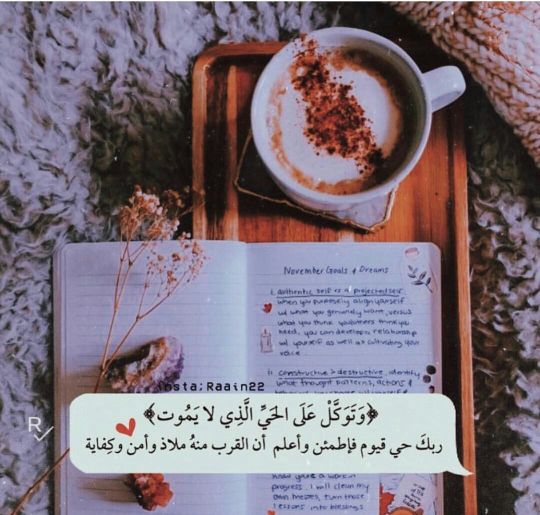 November Goals & Dreams
1. authentic self vs projected self
when you purposely align yourself
w/ what you genuinely want, versus
what you think
need, you can develop relationship
w/ yourself as well as cultivating your
voice.
11. constructive > destructive, identify
what thought patterns, actions &
insta;Raain22
R
﴿وَتَوَكَّلْ عَلَى الحَيِّ الَّذِي لا يَمُوت﴾
ربكَ حي قيوم فإطمئن وأعلم أن القرب منهُ ملاذ وأمن وكِفاية
progress. I will clean my
own messes, turn those
lessons into blessings.